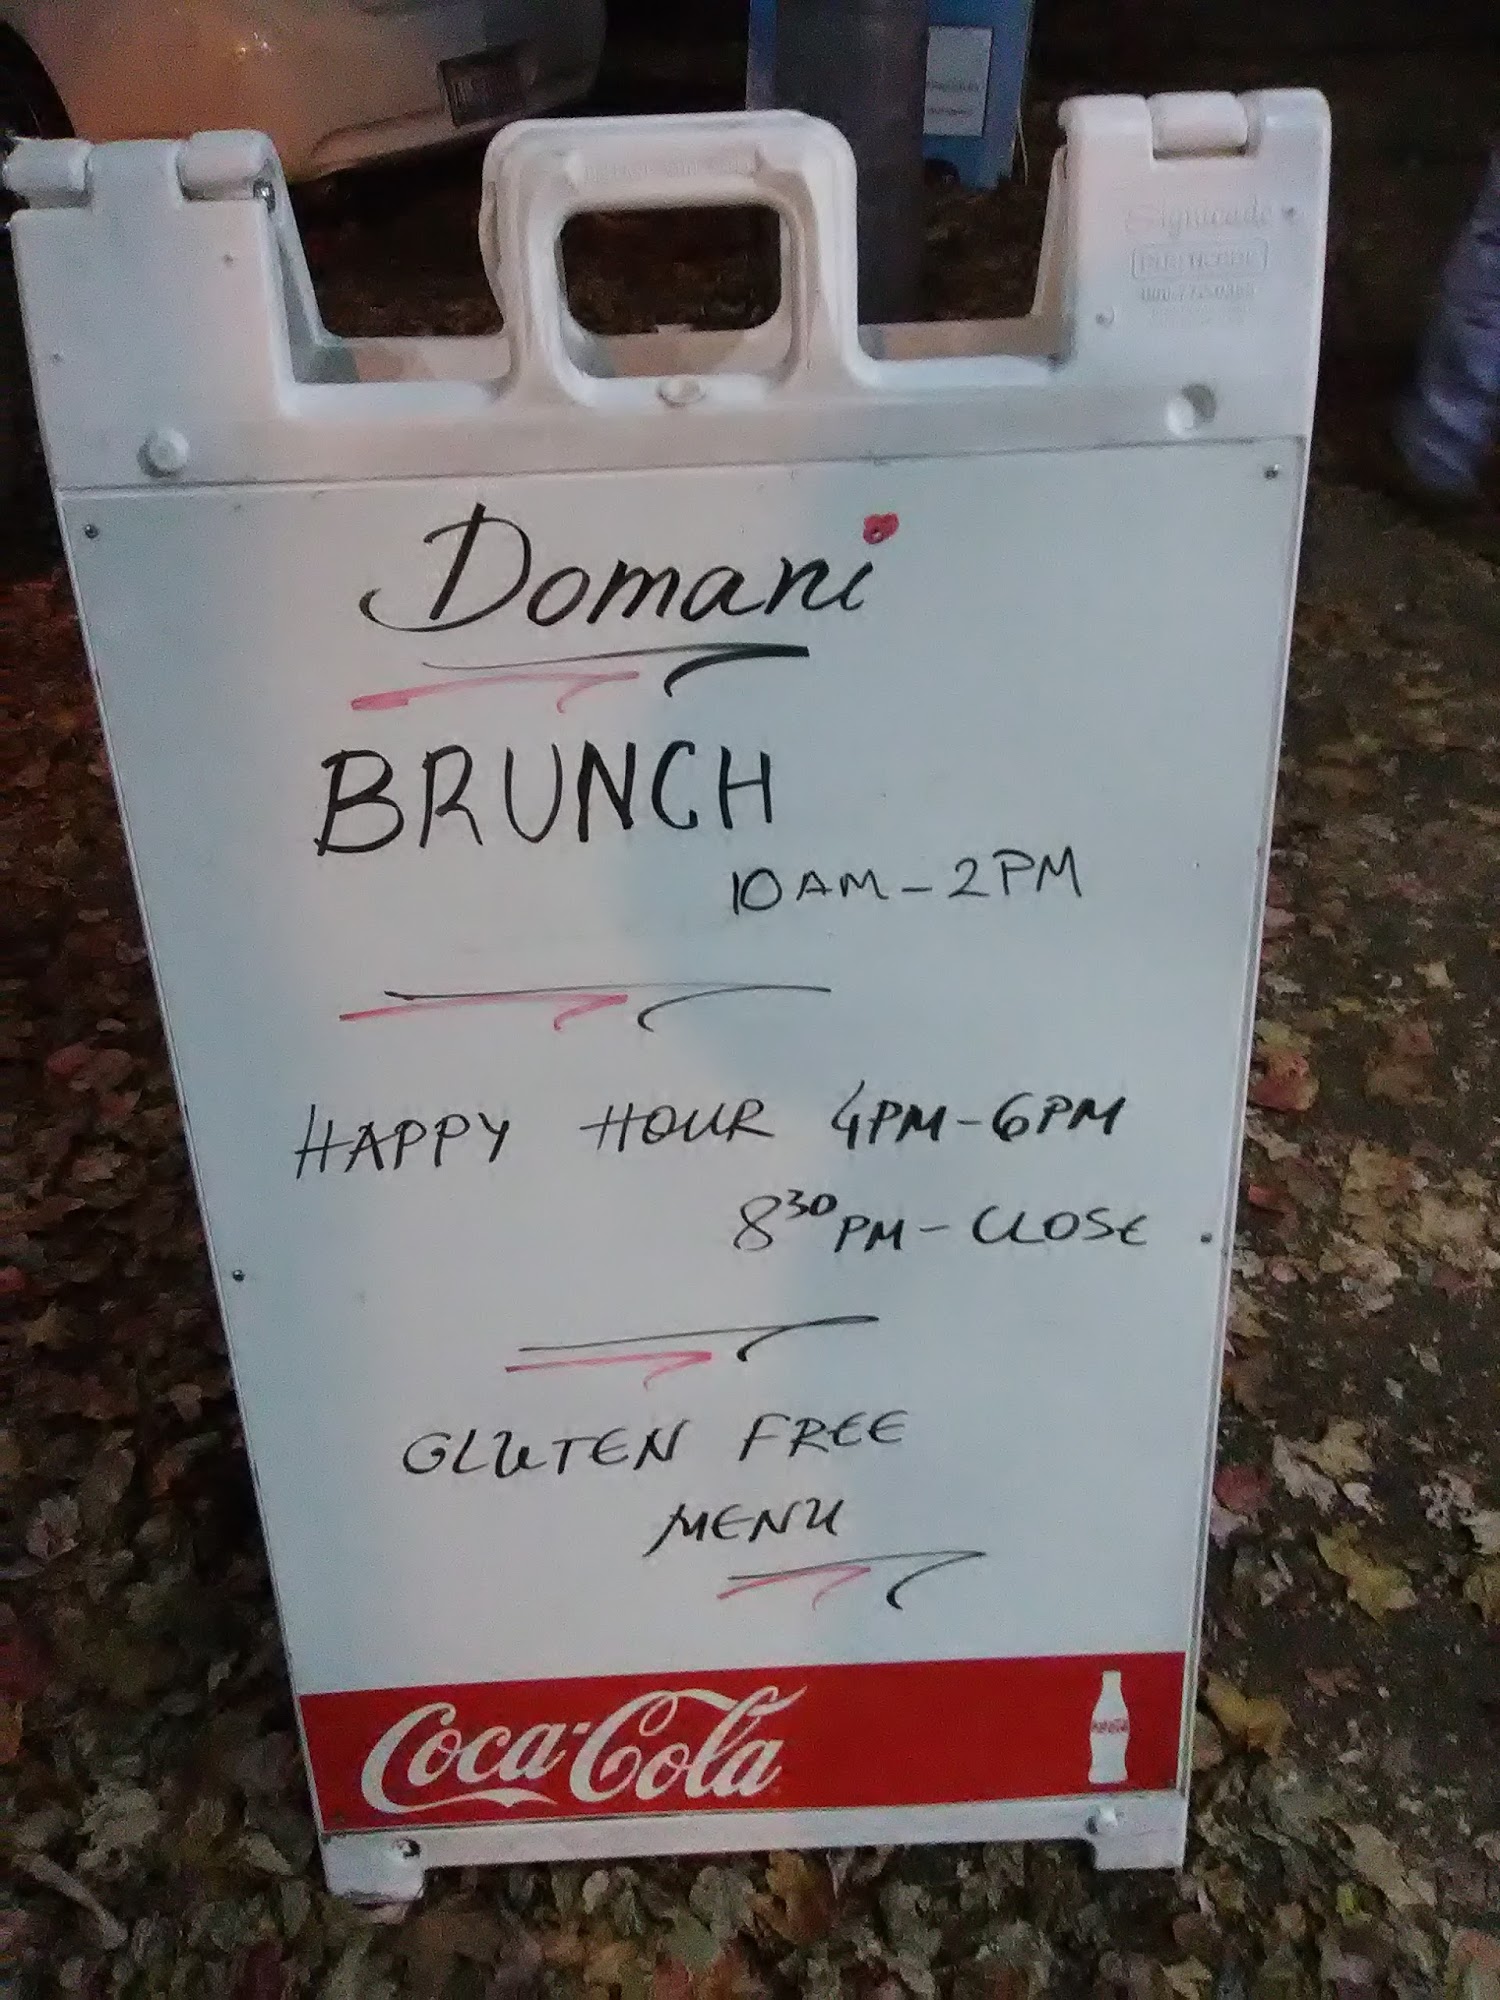 Signicade
Domani
BRUNCH
10AM-2PM
HAPPY HOUR 4PM-6PM
8³⁰PM-CLOSE
GLUTEN FREE
MENU
Coca-Cola